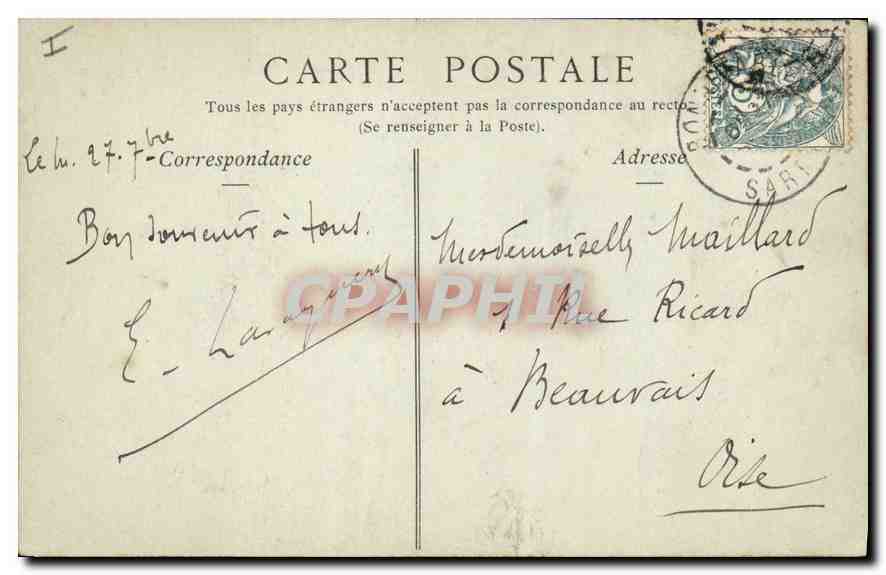 I
CARTE POSTALE
Tous les pays étrangers n'acceptent pas la correspondance au recto
(Se renseigner à la Poste).
Le 27. 7bre
Correspondance
Bon souvenir à tous.
E.
Adresse
Mesdemoiselles Maillard
1 Rue Ricard
à Beauvais
Oise
SART
CPAPHIL